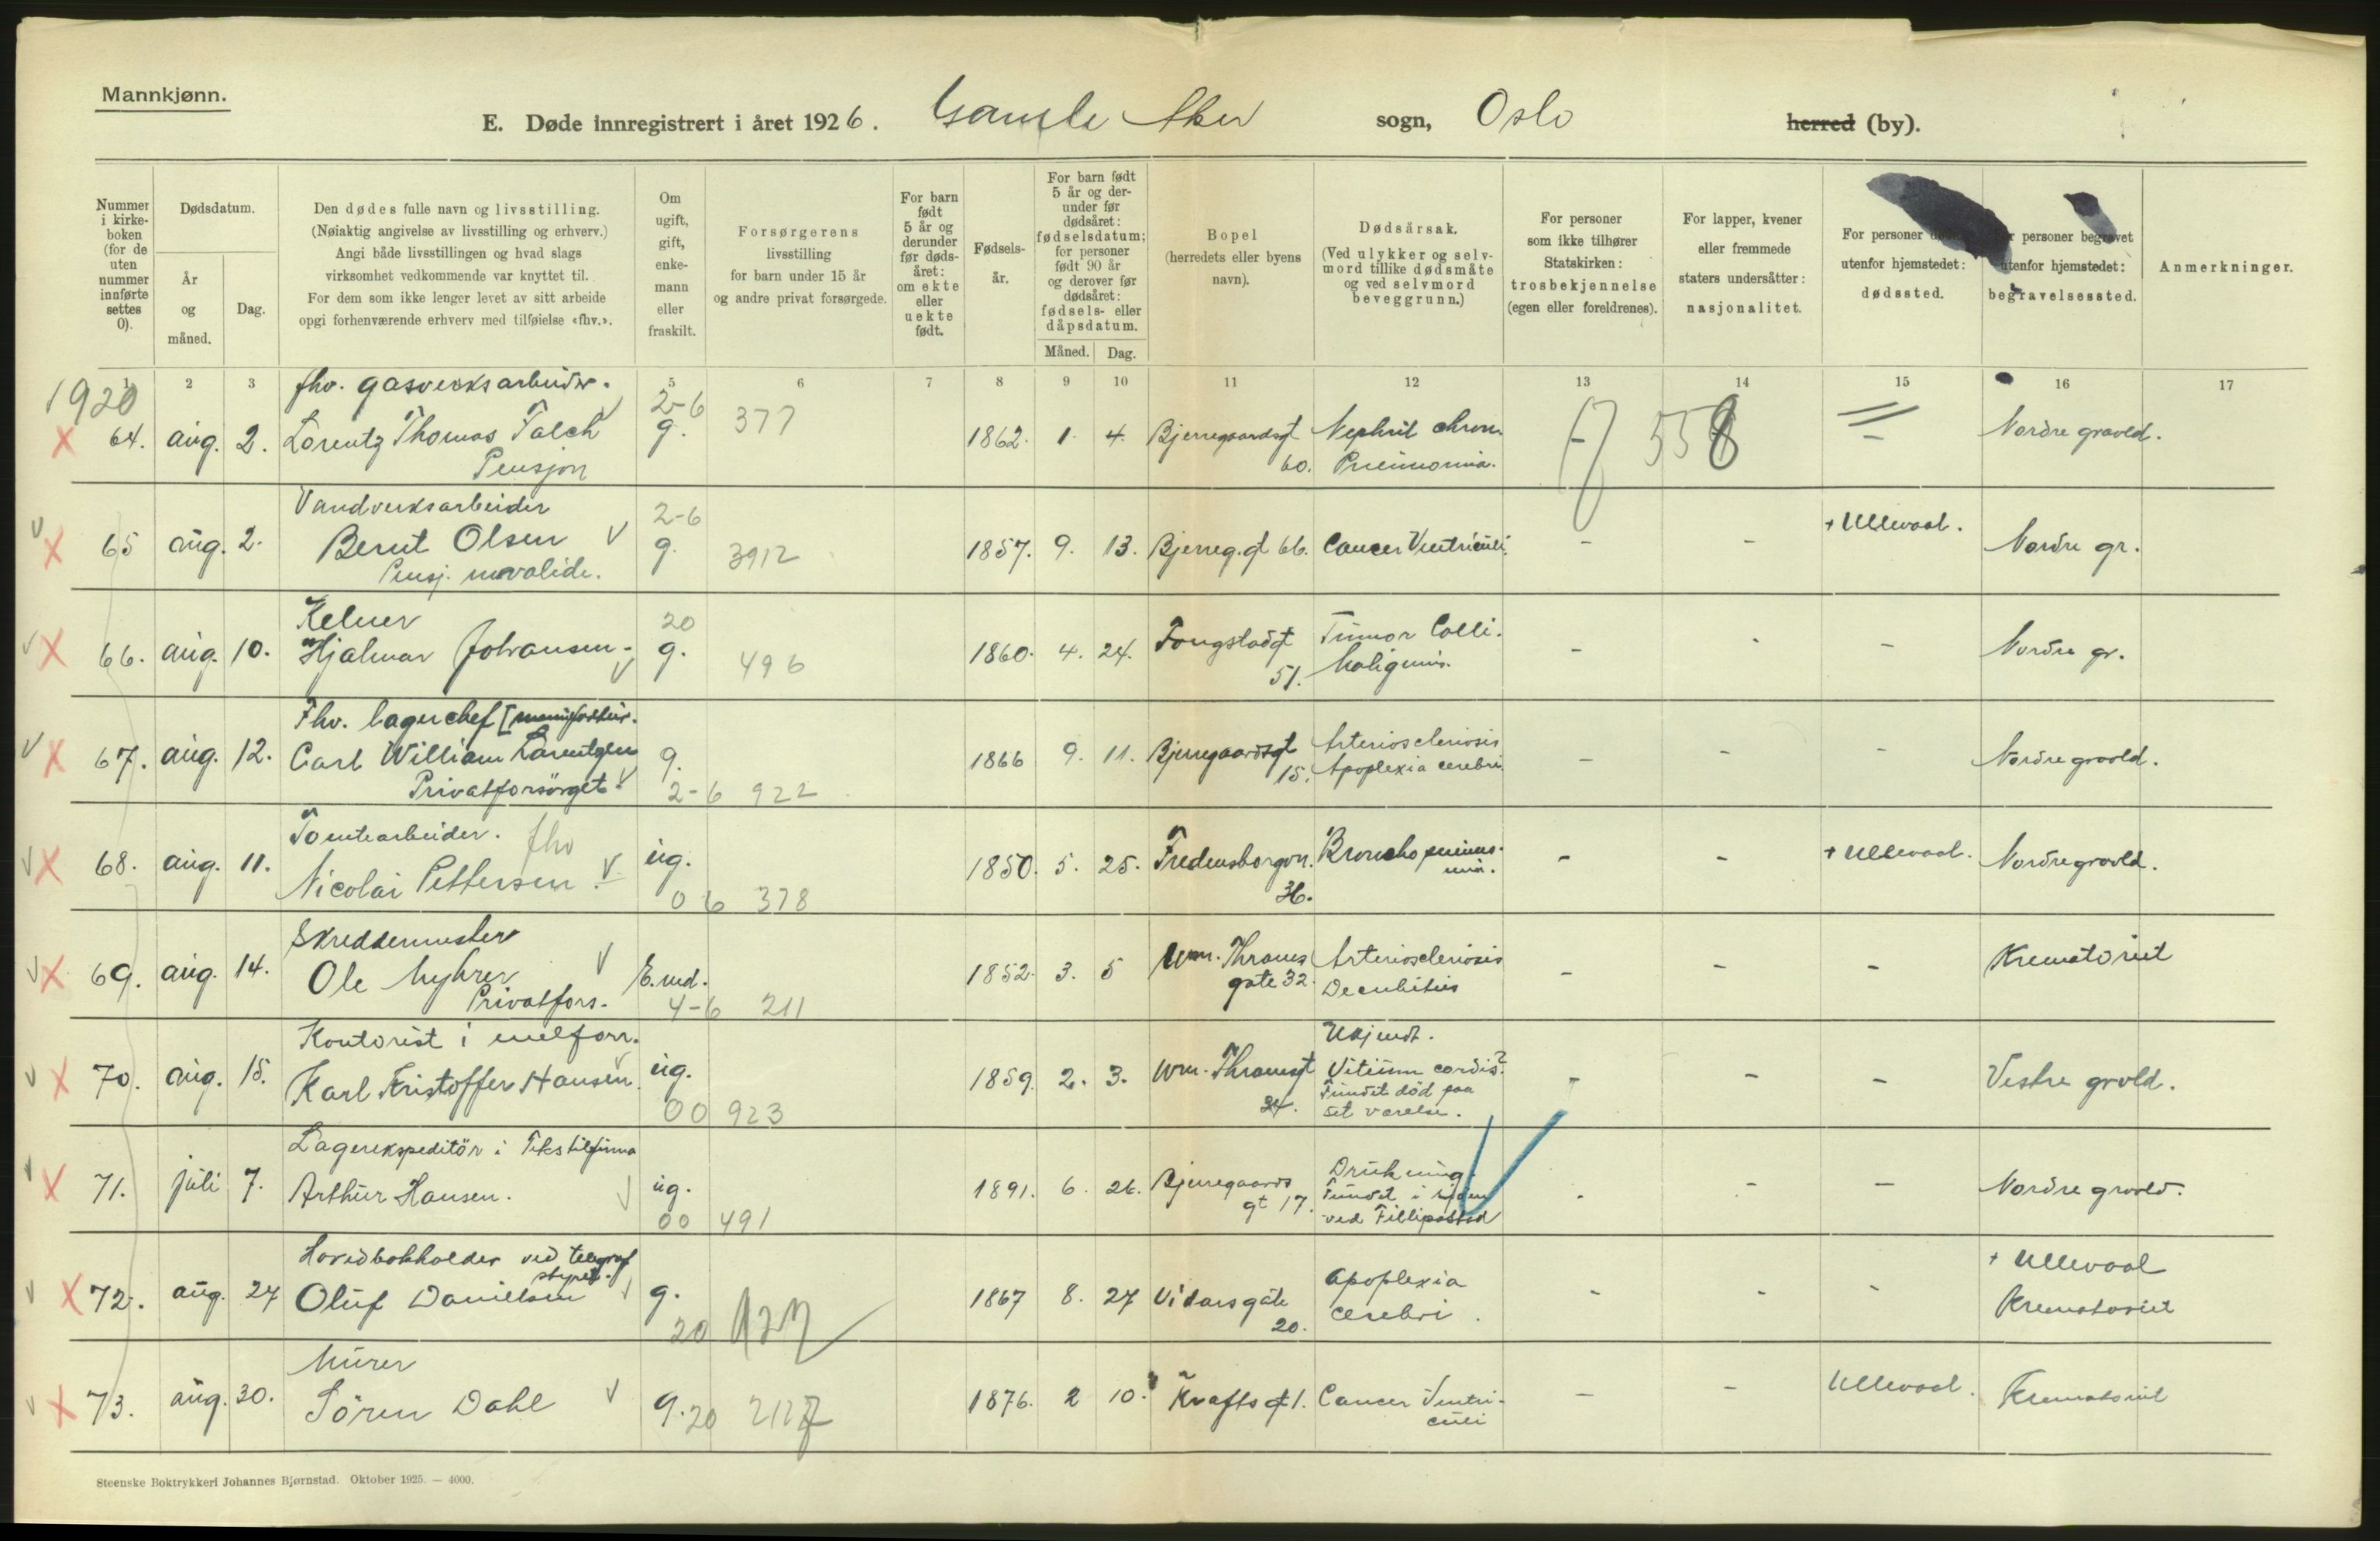 Mannkjønn.
E. Døde innregistrert i året 1926. Gamle Aker sogn, Oslo herred (by).
Nummer i kirkeboken (for de uten nummer innførte settes 0).
Dødsdatum.
År og måned.
Dag.
Den dødes fulle navn og livsstilling.
(Nøiaktig angivelse av livsstilling og erhverv.)
Angi både livsstillingen og hvad slags
virksomhet vedkommende var knyttet til.
For dem som ikke lenger levet av sitt arbeide
opgi forhenværende erhverv med tilføielse «fhv.».
Om ugift, gift, enkemann eller fraskilt.
Forsørgerens
livsstilling
for barn under 15 år
og andre privat forsørgede.
For barn født 5 år og derunder før dødsåret: om ekte eller uekte født.
Fødselsår.
For barn født 5 år og derunder før dødsåret: fødselsdatum; for personer født 90 år og derover før dødsåret: fødsels- eller dåpsdatum.
Måned. Dag.
Bopel
(herredets eller byens
navn).
Dødsårsak.
(Ved ulykker og selvmord tillike dødsmåte og ved selvmord beveggrunn.)
For personer
som ikke tilhører
Statskirken:
trosbekjennelse
(egen eller foreldrenes).
For lapper, kvener
eller fremmede
staters undersåtter:
nasjonalitet.
For personer
utenfor hjemstedet:
dødssted.
personer begravet
utenfor hjemstedet:
begravelsessted.
Anmerkninger.
1 2 3 5 6 7 8 9 10 11 12 13 14 15 16 17
1920
fhv. gasverksarbeider.
2-6
X 64. aug. 2. Lorentz Thomas Falch g. 377 1862. 1. 4. Bjerregaardsgt Nephrit chron. 558 Nordre gravld.
Pensjon 60. Pneumonia.
Vandverksarbeider
2-6
X 65 aug. 2. Bernt Olsen g. 3912 1857. 9. 13. Bjerreg.gt 66. Cancer Ventriculi. - - + Ullevaal. Nordre gr.
Pensj. invalide.
Kelner
20
X 66. aug. 10. Hjalmar Johansen g. 496 1860. 4. 24. Fougstadgt Tumor Colli. - - - Nordre gr.
51. Malignus.
Fhv. lagerchef
X 67. aug. 12. Carl William Larentzen g. 1866 9. 11. Bjerregaardsgt Arteriosclerosis - - - Nordre gravld.
Privatforsörget 2-6 922 15. Apoplexia cerebri.
Tomtearbeider. fhv
X 68. aug. 11. Nicolai Pettersen ug. 1850. 5. 25. Fredensborgvn. Bronchopneumo- - - + Ullevaal. Nordre gravld.
06 378 36. nia.
Skreddermester
X 69. aug. 14. Ole Myhrer E.md. 1852. 3. 5 Wm. Thranes Arteriosclerosis - - - Krematoriet
Privatfors. 4-6 211 gate 32. Decubitus
Kontorist i melforr. Ukjendt.
X 70. aug. 15. Karl Kristoffer Hansen ug. 1859. 2. 3. Wm. Thranesgt Vitium cordis? - - - Vestre gravld.
00 923 24. Fundet död paa
sit værelse.
Lagerekspeditör i Tekstilfirma
X 71. juli 7. Arthur Hansen. ug. 1891. 6. 26. Bjerregaards Drukning. - - - Nordre gravld.
00 491 gt 17. Fundet i sjöen
ved Fillipstad
Hovedbokholder ved telegraf
styret. + Ullevaal
X 72. aug. 27 Oluf Danielsen g. 1867 8. 27 Vidarsgate apoplexia - - - Krematoriet
20 927 20. cerebri.
Murer
X 73. aug. 30. Sören Dahl g. 20 2127 1876. 2 10. Krafts gt 1. Cancer Ventri- - - Ullevaal. Krematoriet
culi
Steenske Boktrykkeri Johannes Bjørnstad. Oktober 1925. — 4000.